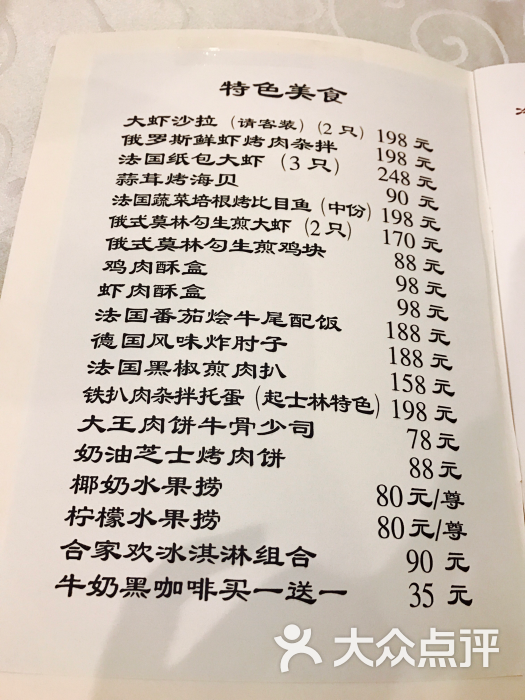 特色美食
大虾沙拉（请客装）（2只） 198 元
俄罗斯鲜虾烤肉杂拌 198 元
法国纸包大虾（3只） 248 元
蒜茸烤海贝 90 元
法国蔬菜培根烤比目鱼（中份） 198 元
俄式莫林勾生煎大虾（2只） 170 元
俄式莫林勾生煎鸡块 88 元
鸡肉酥盒 98 元
虾肉酥盒 98 元
法国番茄烩牛尾配饭 188 元
德国风味炸肘子 188 元
法国黑椒煎肉扒 158 元
铁扒肉杂拌托蛋（起士林特色） 198 元
大王肉饼牛骨少司 78 元
奶油芝士烤肉饼 88 元
椰奶水果捞 80 元/尊
柠檬水果捞 80 元/尊
合家欢冰淇淋组合 90 元
牛奶黑咖啡买一送一 35 元
大众点评